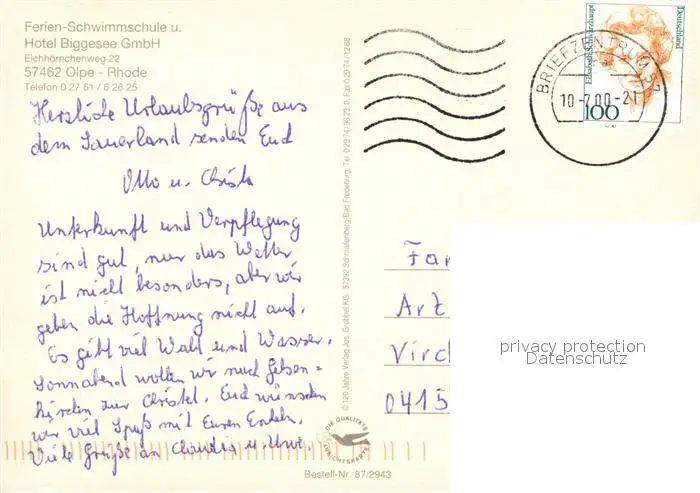 Ferien-Schwimmschule u.
Hotel Biggesee GmbH
Eichhörnchenweg 22
57462 Olpe - Rhode
Telefon 0 27 61 / 6 28 25
Herzliche Urlaubsgrüße aus
dem Sauerland senden Euch
Otto u. Christa
Unterkunft und Verpflegung
sind gut, nur das Wetter
ist nicht besonders, aber wir
geben die Hoffnung nicht auf.
Es gibt viel Wald und Wasser.
Sonnabend wollen wir nach Gelsen=
kirchen zur Christel. Euch wünschen
wir viel Spaß mit Euren Enkeln.
Viele Grüße an Claudia u. Uwe.
© 120 Jahre Verlag Jos. Grobbel KG, 57392 Schmallenberg-Bad Fredeburg, Tel. 0 29 74 / 96 23-0, Fax 0 29 74 / 12 88
DIE QUALITÄTS
ANSICHTSKARTE
Bestell-Nr. 87/2943
BRIEFZENTRUM 57
10-7.00-21
Elisabeth Schwarzhaupt
Deutschland
100
Fam
Art
Virch
0415
privacy protection
Datenschutz